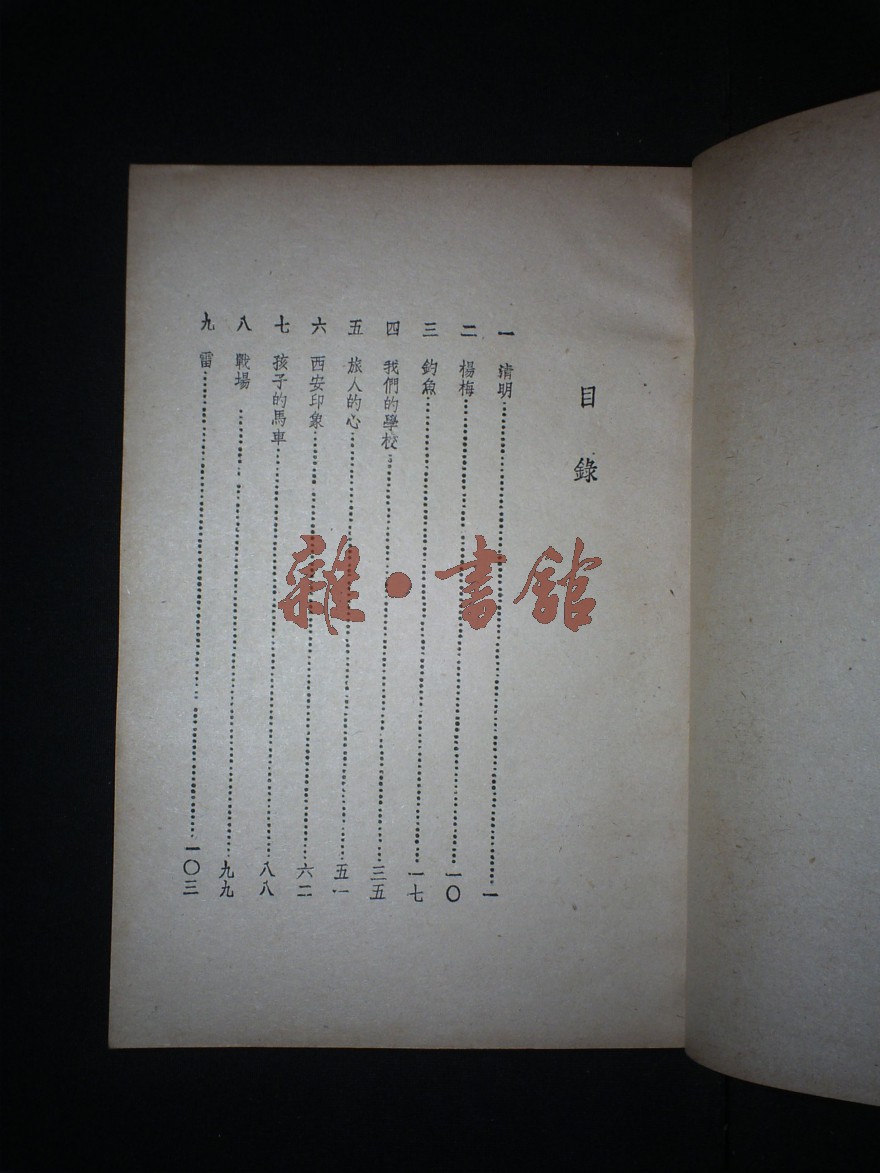 目錄
一 清明⋯⋯一
二 楊梅⋯⋯一〇
三 釣魚⋯⋯一七
四 我們的學校⋯⋯三五
五 旅人的心⋯⋯五一
六 西安印象⋯⋯六二
七 孩子的馬車⋯⋯八八
八 戰場⋯⋯九九
九 雷⋯⋯一〇三
雜·書館